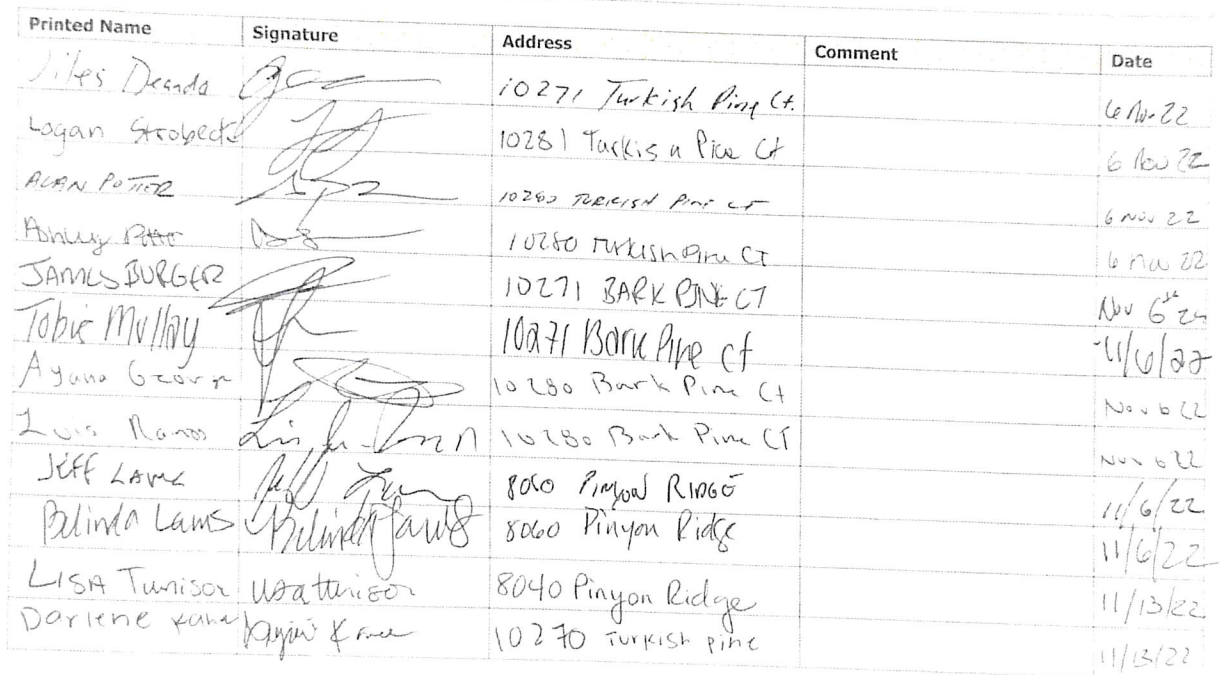 Printed Name Signature Address Comment Date
Jiles Deanda 10271 Turkish Pine Ct. 6 Nov 22
Logan Strobeck 10281 Turkish Pine Ct 6 Nov 22
ALAN POTTER 10280 TURKISH PINE CT 6 NOV 22
Ashley 10280 Turkish Pine CT 6 Nov 22
JAMES BURGER 10271 BARK PINE CT Nov 6
Tobie Mullay 10271 Bark Pine Ct 11/6/22
Ayana George 10280 Bark Pine Ct Nov 6 22
Luis Ramos 10280 Bark Pine CT Nov 6 22
JEFF 8060 PINYON RIDGE 11/6/22
Belinda Laws Belinda Laws 8060 Pinyon Ridge 11/6/22
LISA Tunison Lisa Tunison 8040 Pinyon Ridge 11/13/22
Darlene 10270 Turkish pine 11/13/22